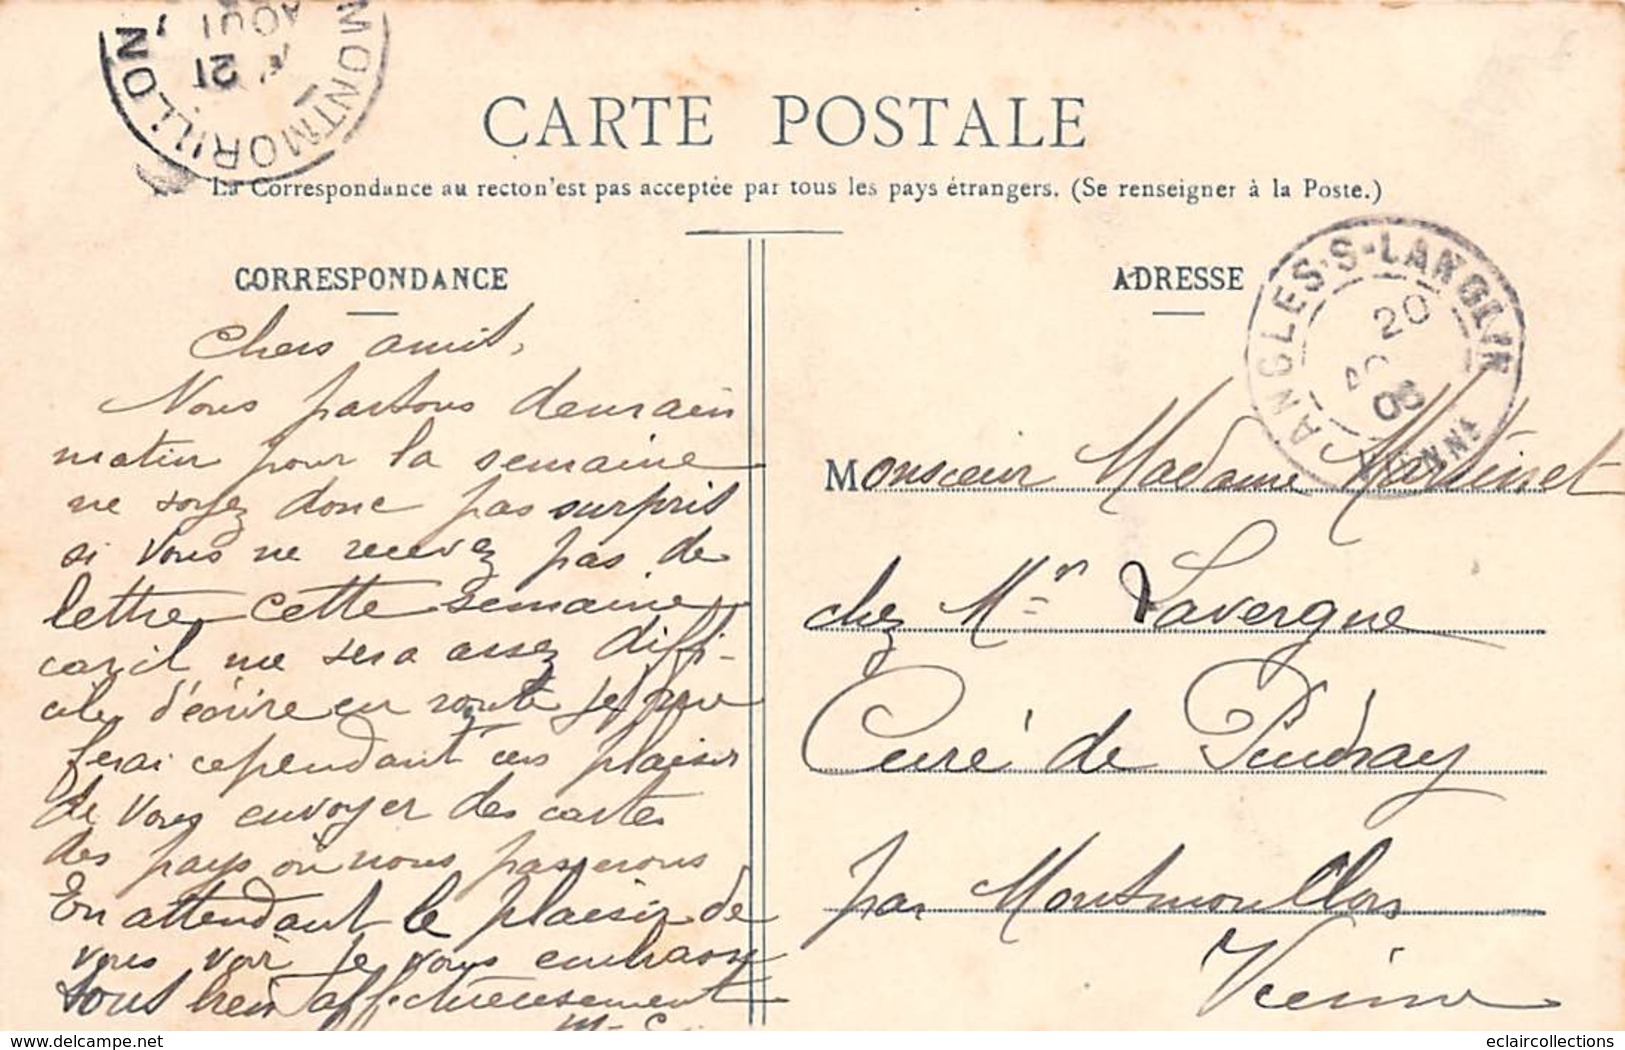 MONTMORILLON
21
AOUT
CARTE POSTALE
La Correspondance au recto n'est pas acceptée par tous les pays étrangers. (Se renseigner à la Poste.)
CORRESPONDANCE
Chers amis,
Nous partons demain
matin pour la semaine
ne soyez donc pas surpris
si vous ne recevez pas de
lettre cette semaine
car il me sera assez diffi-
cile d'écrire en route je me
ferai cependant un plaisir
de vous envoyer des cartes
des pays où nous passerons
En attendant le plaisir de
vous voir je vous embrasse
tous bien affectueusement
ADRESSE
ANGLES-S-LANGLIN
20
06
VIENNE
Monsieur Madame Martinet
chez Mr Lavergne
Curé de Pindray
par Montmorillon
Vienne
www.delcampe.net
eclaircollections